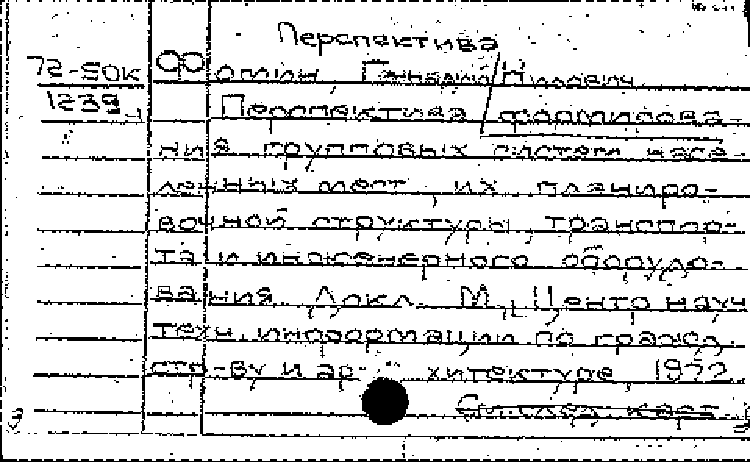 Перспектива
72-50к Фомин, Геннадий Нилович
1239 Перспектива формирова-
ния групповых систем насе-
ленных мест, их планиро-
вочной структуры, транспор-
та и инженерного оборудо-
вания. Докл. М., Центр науч
техн. информации по гражд.
стр-ву и ар- хитектуре, 1972.
См. след. карт.